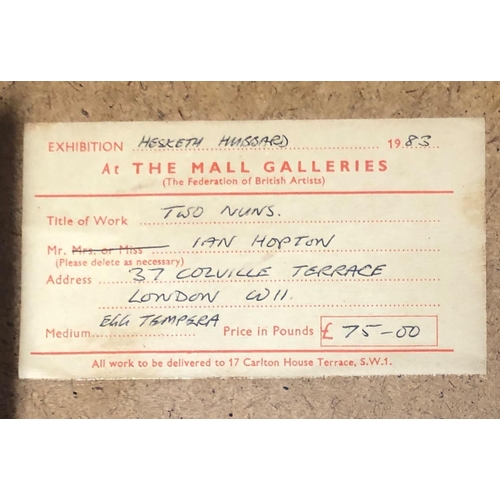 EXHIBITION HESKETH HUBBARD 1983
At THE MALL GALLERIES
(The Federation of British Artists)
Title of Work TWO NUNS.
Mr. Mrs. or Miss IAN HOPTON
(Please delete as necessary)
Address 37 COLVILLE TERRACE
LONDON W11.
Medium EGG TEMPERA Price in Pounds £75-00
All work to be delivered to 17 Carlton House Terrace, S.W.1.